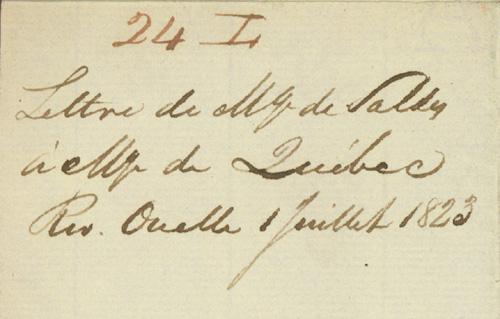 24 I
Lettre de Mgr de Saldes
à Mgr de Québec
Riv. Ouelle 1 Juillet 1823